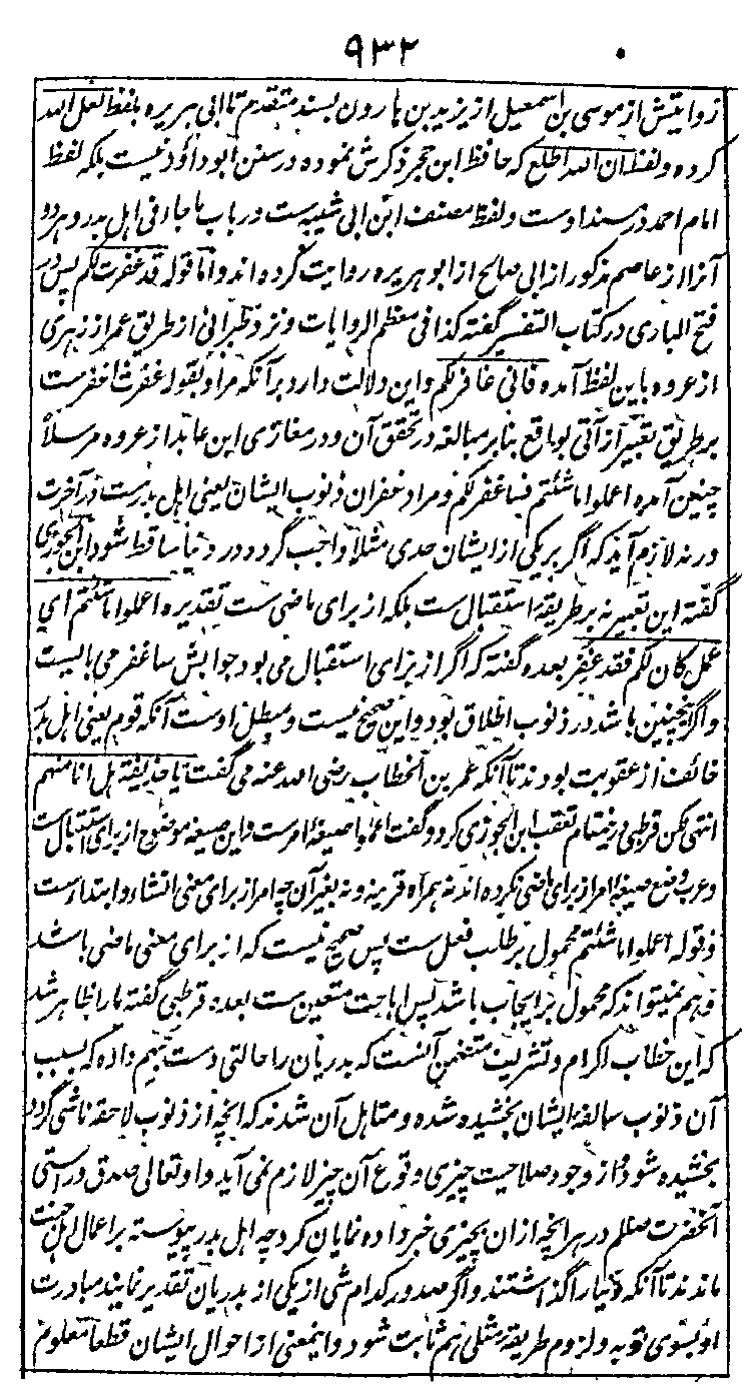 ۹۳۲
روایتش از موسی بن اسمعیل از یزید بن هارون بسند متقدم تا ابی هریره بلفظ لعل الله
کرده و لفظ ان الله اطلع که حافظ ابن حجر ذکرش نموده در سنن ابو داؤد نیست بلکه لفظ
امام احمد در مسند اوست و لفظ مصنف ابن ابی شیبه ست در باب ما جاء فی اهل بدر و هر دو
آنرا از عاصم مذکور از ابی صالح از ابو هریره روایت کرده اند و اما قوله قد غفرت لکم پس در
فتح الباری در کتاب التفسیر گفته کذا فی معظم الروایات و نزد طبرانی از طریق معمر از زهری
از عروه باین لفظ آمده فانی غافر لکم و این دلالت دارد بر آنکه مراد بقوله غفرت اغفرست
بر طریق تعبیر از آتی بواقع بنابر مبالغه در تحقق آن و در مغازی ابن عایذ از عروه مرسلاً
چنین آمده اعملوا ما شئتم فساغفر لکم و مراد غفران ذنوب ایشان یعنی اهل بدرست در آخرت
ورنه لازم آید که اگر بر یکی از ایشان حدی مثلاً واجب گردد در دنیا ساقط شود ابن الجوزی
گفته این تعبیر نه بر طریقهٔ استقبال ست بلکه از برای ماضی ست تقدیره اعملوا ما شئتم ای
عمل کان لکم فقد غفر بعده گفته که اگر از برای استقبال می بود جوابش ساغفر می بایست
و اگر چنین باشد در ذنوب اطلاق بود و این صحیح نیست و مبطل اوست آنکه قوم یعنی اهل بدر
خائف از عقوبت بودند تا آنکه عمر بن الخطاب رضی الله عنه می گفت یا حذیفة هل انا منهم
انتهی لکن قرطبی درینمقام تعقب ابن الجوزی کرد و گفت اعملوا صیغهٔ امرست و این صیغه موضوع از برای استقبال ست
و عرب وضع صیغهٔ امر از برای ماضی نکرده اند نه همراه قرینه و نه بغیر آن چه امر از برای معنی انشاء و ابتداء ست
و قوله اعملوا ما شئتم محمول بر طلب فعل ست پس صحیح نیست که از برای معنی ماضی باشد
و هم نمیتواند که محمول بر ایجاب باشد پس اباحت متعین ست بعده قرطبی گفته ما را ظاهر شد
که این خطاب اکرام و تشریف متضمن آنست که بدریان را حالتی دست بهم داده که بسبب
آن ذنوب سالفهٔ ایشان بخشیده شده و متاهل آن شدند که آنچه از ذنوب لاحقه ناشی گردد
بخشیده شود و از وجود صلاحیت چیزی وقوع آن چیز لازم نمی آید و او تعالی صدق و راستی
آنحضرت صلعم در هر آنچه از ان بچیزی خبر داده نمایان کرد چه اهل بدر پیوسته بر اعمال اهل جنت
ماندند تا آنکه دنیا را گذاشتند و اگر صدور کدام شی از یکی از بدریان تقدیر نمایند مبادرت
او بسوی توبه و لزوم طریقهٔ مثلی هم ثابت شود و اینمعنی از احوال ایشان قطعاً معلوم